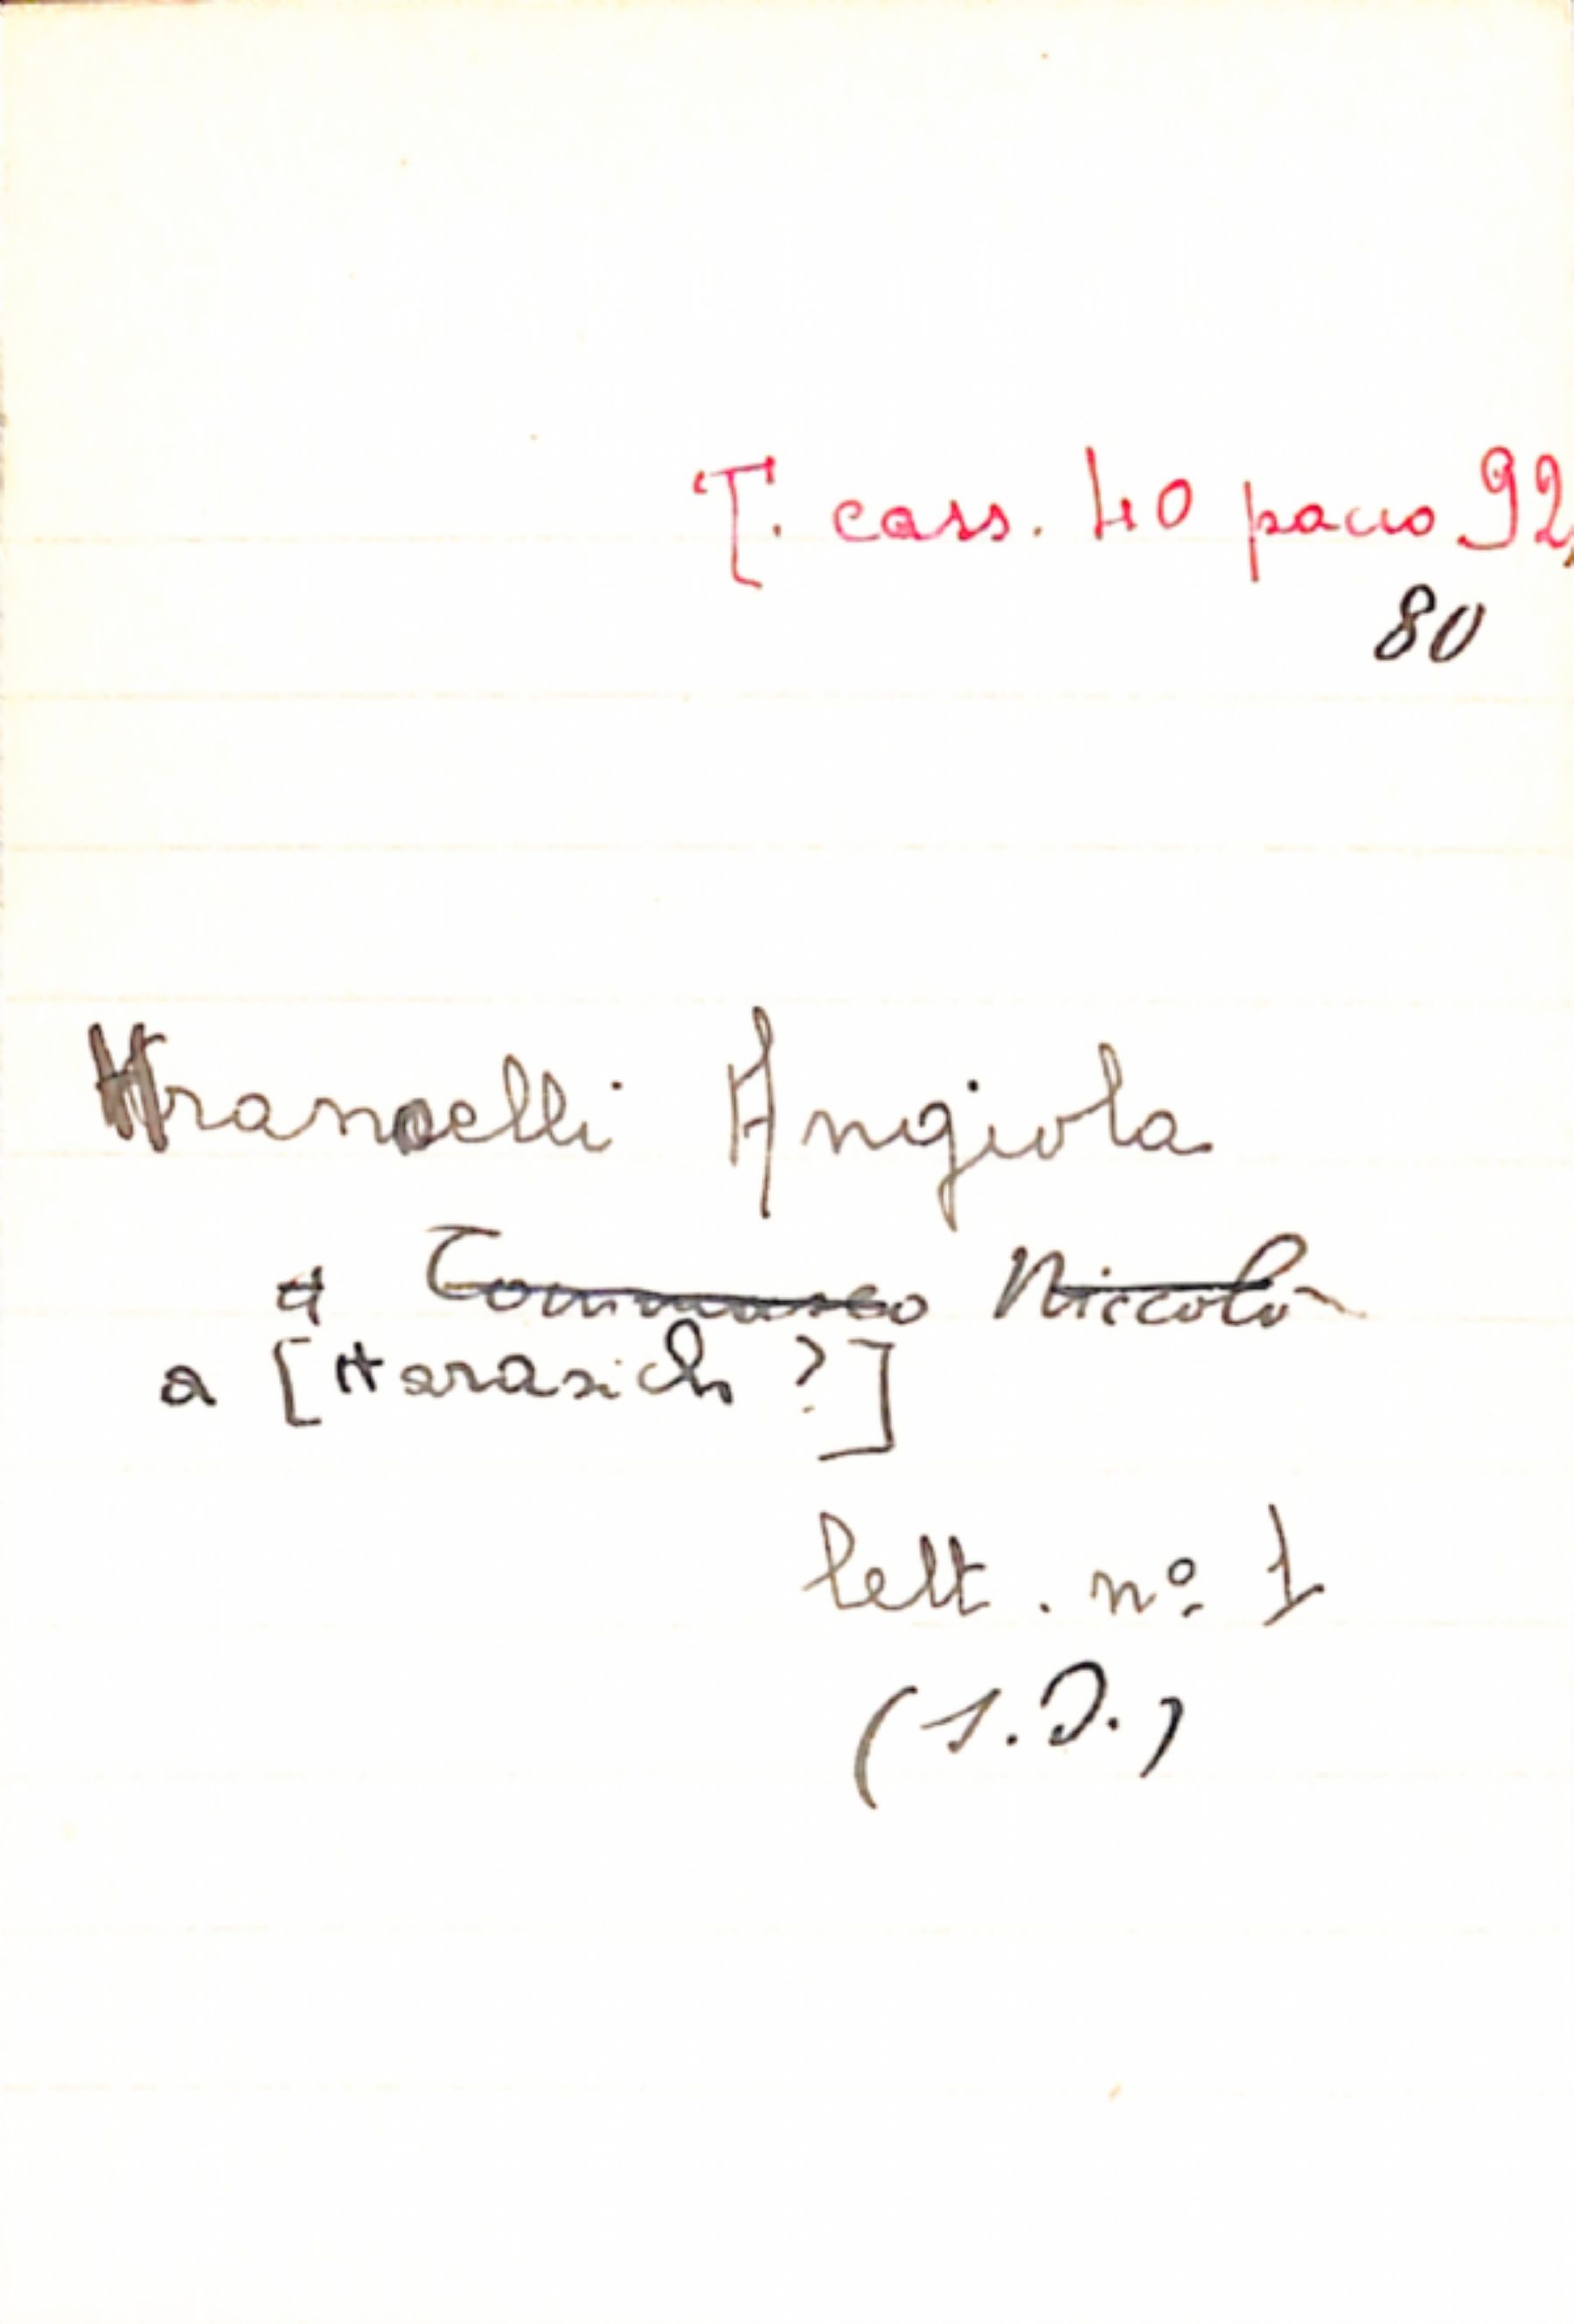 T. cass. 40 pacco 92,
80
Angiola
a Tommaseo Niccolò
a [Harasich ?]
lett. nº 1
(s.D.)